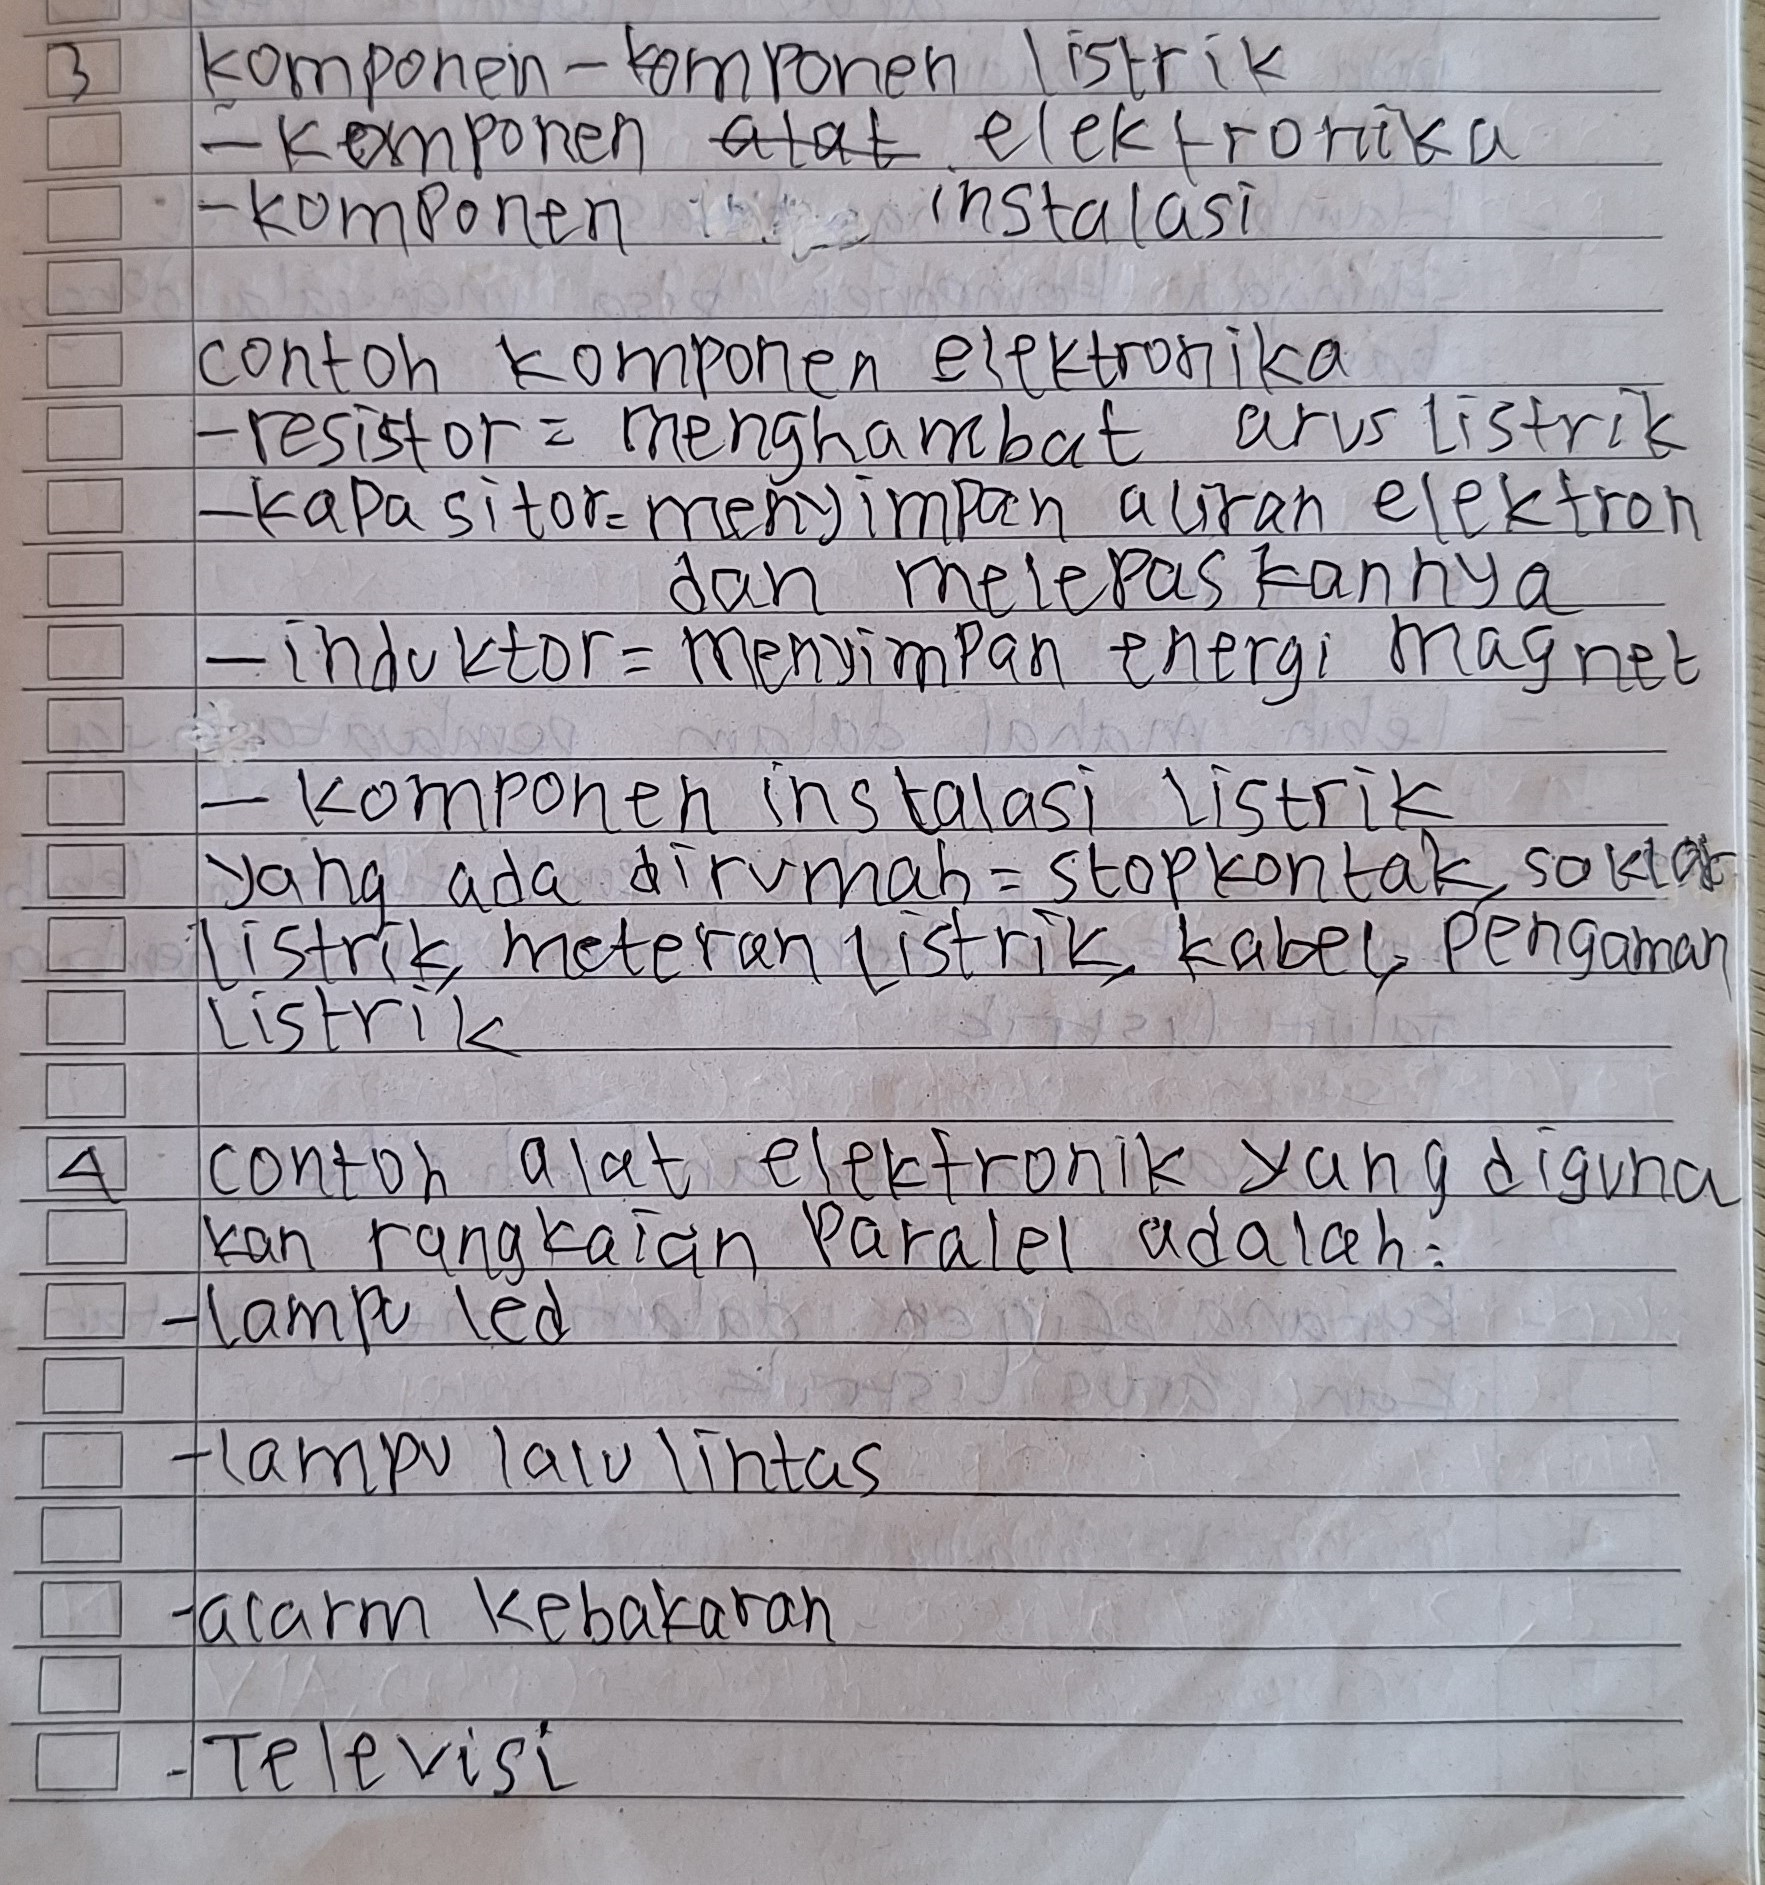 3 komponen-komponen listrik
- komponen alat elektronika
- komponen instalasi
contoh komponen elektronika
- resistor = menghambat arus listrik
- kapasitor = menyimpan aliran elektron
dan melepaskannya
- induktor = menyimpan energi magnet
- komponen instalasi listrik
yang ada dirumah = stopkontak,
listrik, meteran listrik, kabel, pengaman
listrik
4 contoh alat elektronik yang diguna
kan rangkaian Paralel adalah:
- lampu led
- lampu lalu lintas
- alarm kebakaran
- Televisi